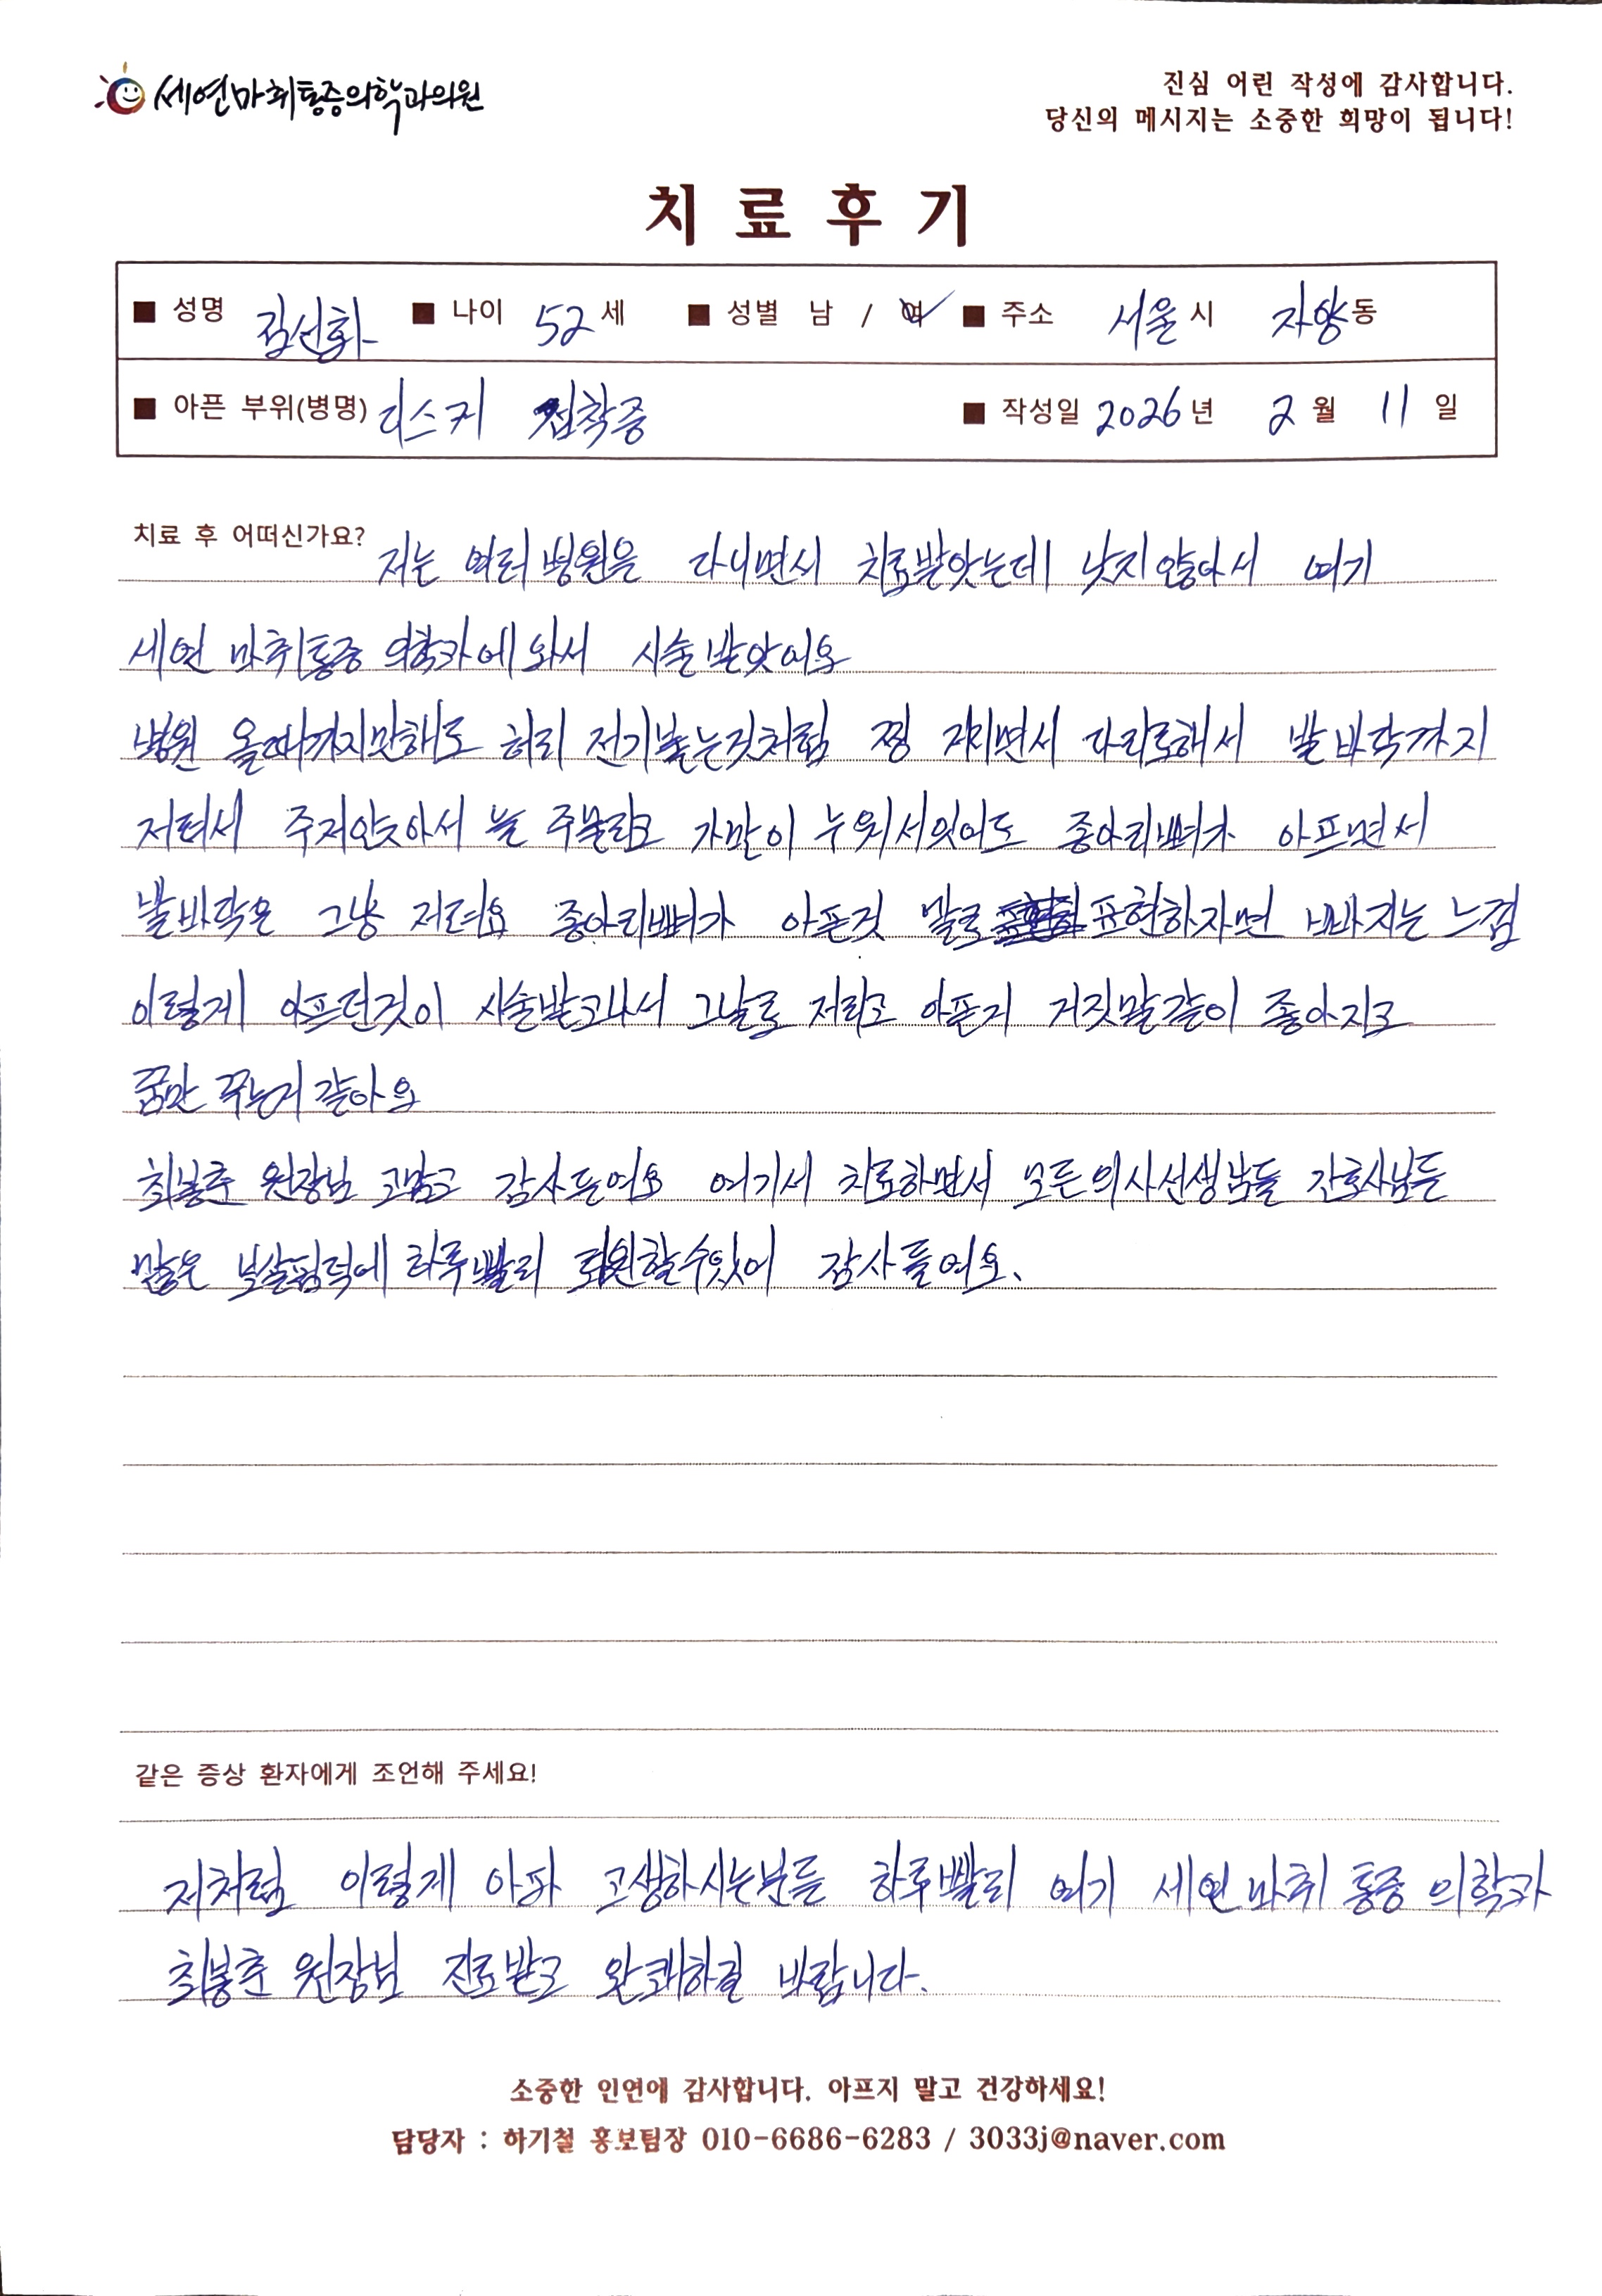 세연마취통증의학과의원
진심 어린 작성에 감사합니다.
당신의 메시지는 소중한 희망이 됩니다!
치료후기
■ 성명 김선화 ■ 나이 52 세 ■ 성별 남 / 여 ■ 주소 서울 시 자양 동
■ 아픈 부위(병명) 디스커 접착증 ■ 작성일 2026 년 2 월 11 일
치료 후 어떠신가요? 저는 여러 병원을 다니면서 치료받앗는데 낫지 않아서 여기
세연 마취통증 의학과에 와서 시술 받앗어요
병원 올때까지만해도 허리 전기붙는것처럼 찡 저지면서 다리로해서 발바닥까지
저려서 주저앉아서 늘 주물르고 가많이 누워서있어도 종아리뼈가 아프면서
발바닥은 그냥 저려요 종아리뼈가 아픈것 말로 표현하자면 빠지는 느낌
이렇게 아프던것이 시술받고나서 그날로 저리고 아픈거 거짓말같이 좋아지고
꿈만 꾸는거 같아요
최봉춘 원장님 고맙고 감사드려요 여기서 치료하면서 모든의사선생님들 간호사님든
많은 보살핌덕에 하루빨리 퇴원할수있어 감사들여요.
같은 증상 환자에게 조언해 주세요!
저처럼 이렇게 아파 고생하시는분든 하루빨리 여기 세연마취 통증 의학과
최봉춘 원장님 진료받고 완쾌하길 바랍니다.
소중한 인연에 감사합니다. 아프지 말고 건강하세요!
담당자 : 하기철 홍보팀장 010-6686-6283 / 3033j@naver.com